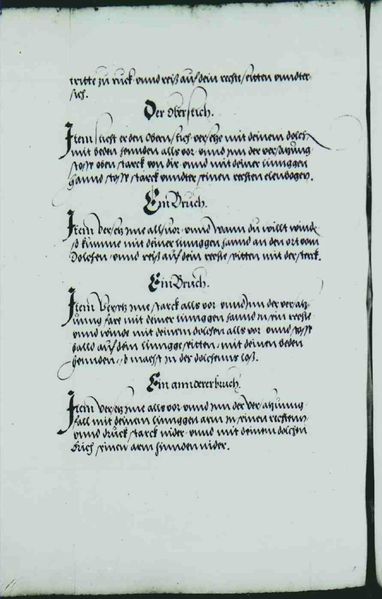 tritte zu ruck vnnd reiß auf dein rechte seitten vnndter
sich.
Der oberstich.
Item sticht er den oben stich versetze mit deinem dolch
mit beden hennden alls vor vnnd inn der versatzung
stoss oben starck von dir vnnd mit deiner linnggen
hannd stoss starck vnndter seinen rechten elenbogen.
Ein Bruch.
Item versetz inne alls vor vnnd wann du willt winnd
so kumme mit deiner linnggen hannd an den ort vom
Dolchen vnnd reiß auf dein rechte seitten mit der sterck.
Ein Bruch.
Item versetz inne starck alls vor vnnd inn der versatz
unng far mit deiner linnggen hannd in sein rechte
vnnd winndt mit deinem dolchen alls vor vnnd stoss
balld auf dein linngge seitten mit deinen beden
hennden so machst in der dolchenns loß.
Ein annderer bruch.
Item versetz inne alls vor vnnd inn der versatzunng
fall mit deinem linnggen arm in seinen rechten
vnnd druck starck nider vnnd mit deinem dolchen
Brich seinen arm hinden nider.